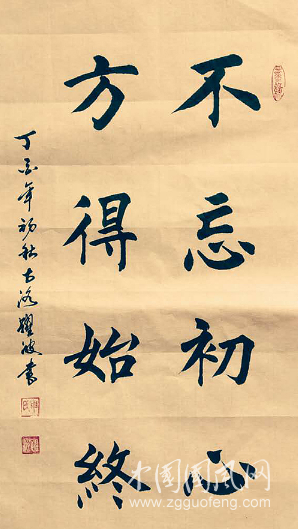 不忘初心
方得始終
丁酉年初秋古洛耀波書
中国国风网
www.zgguofeng.com